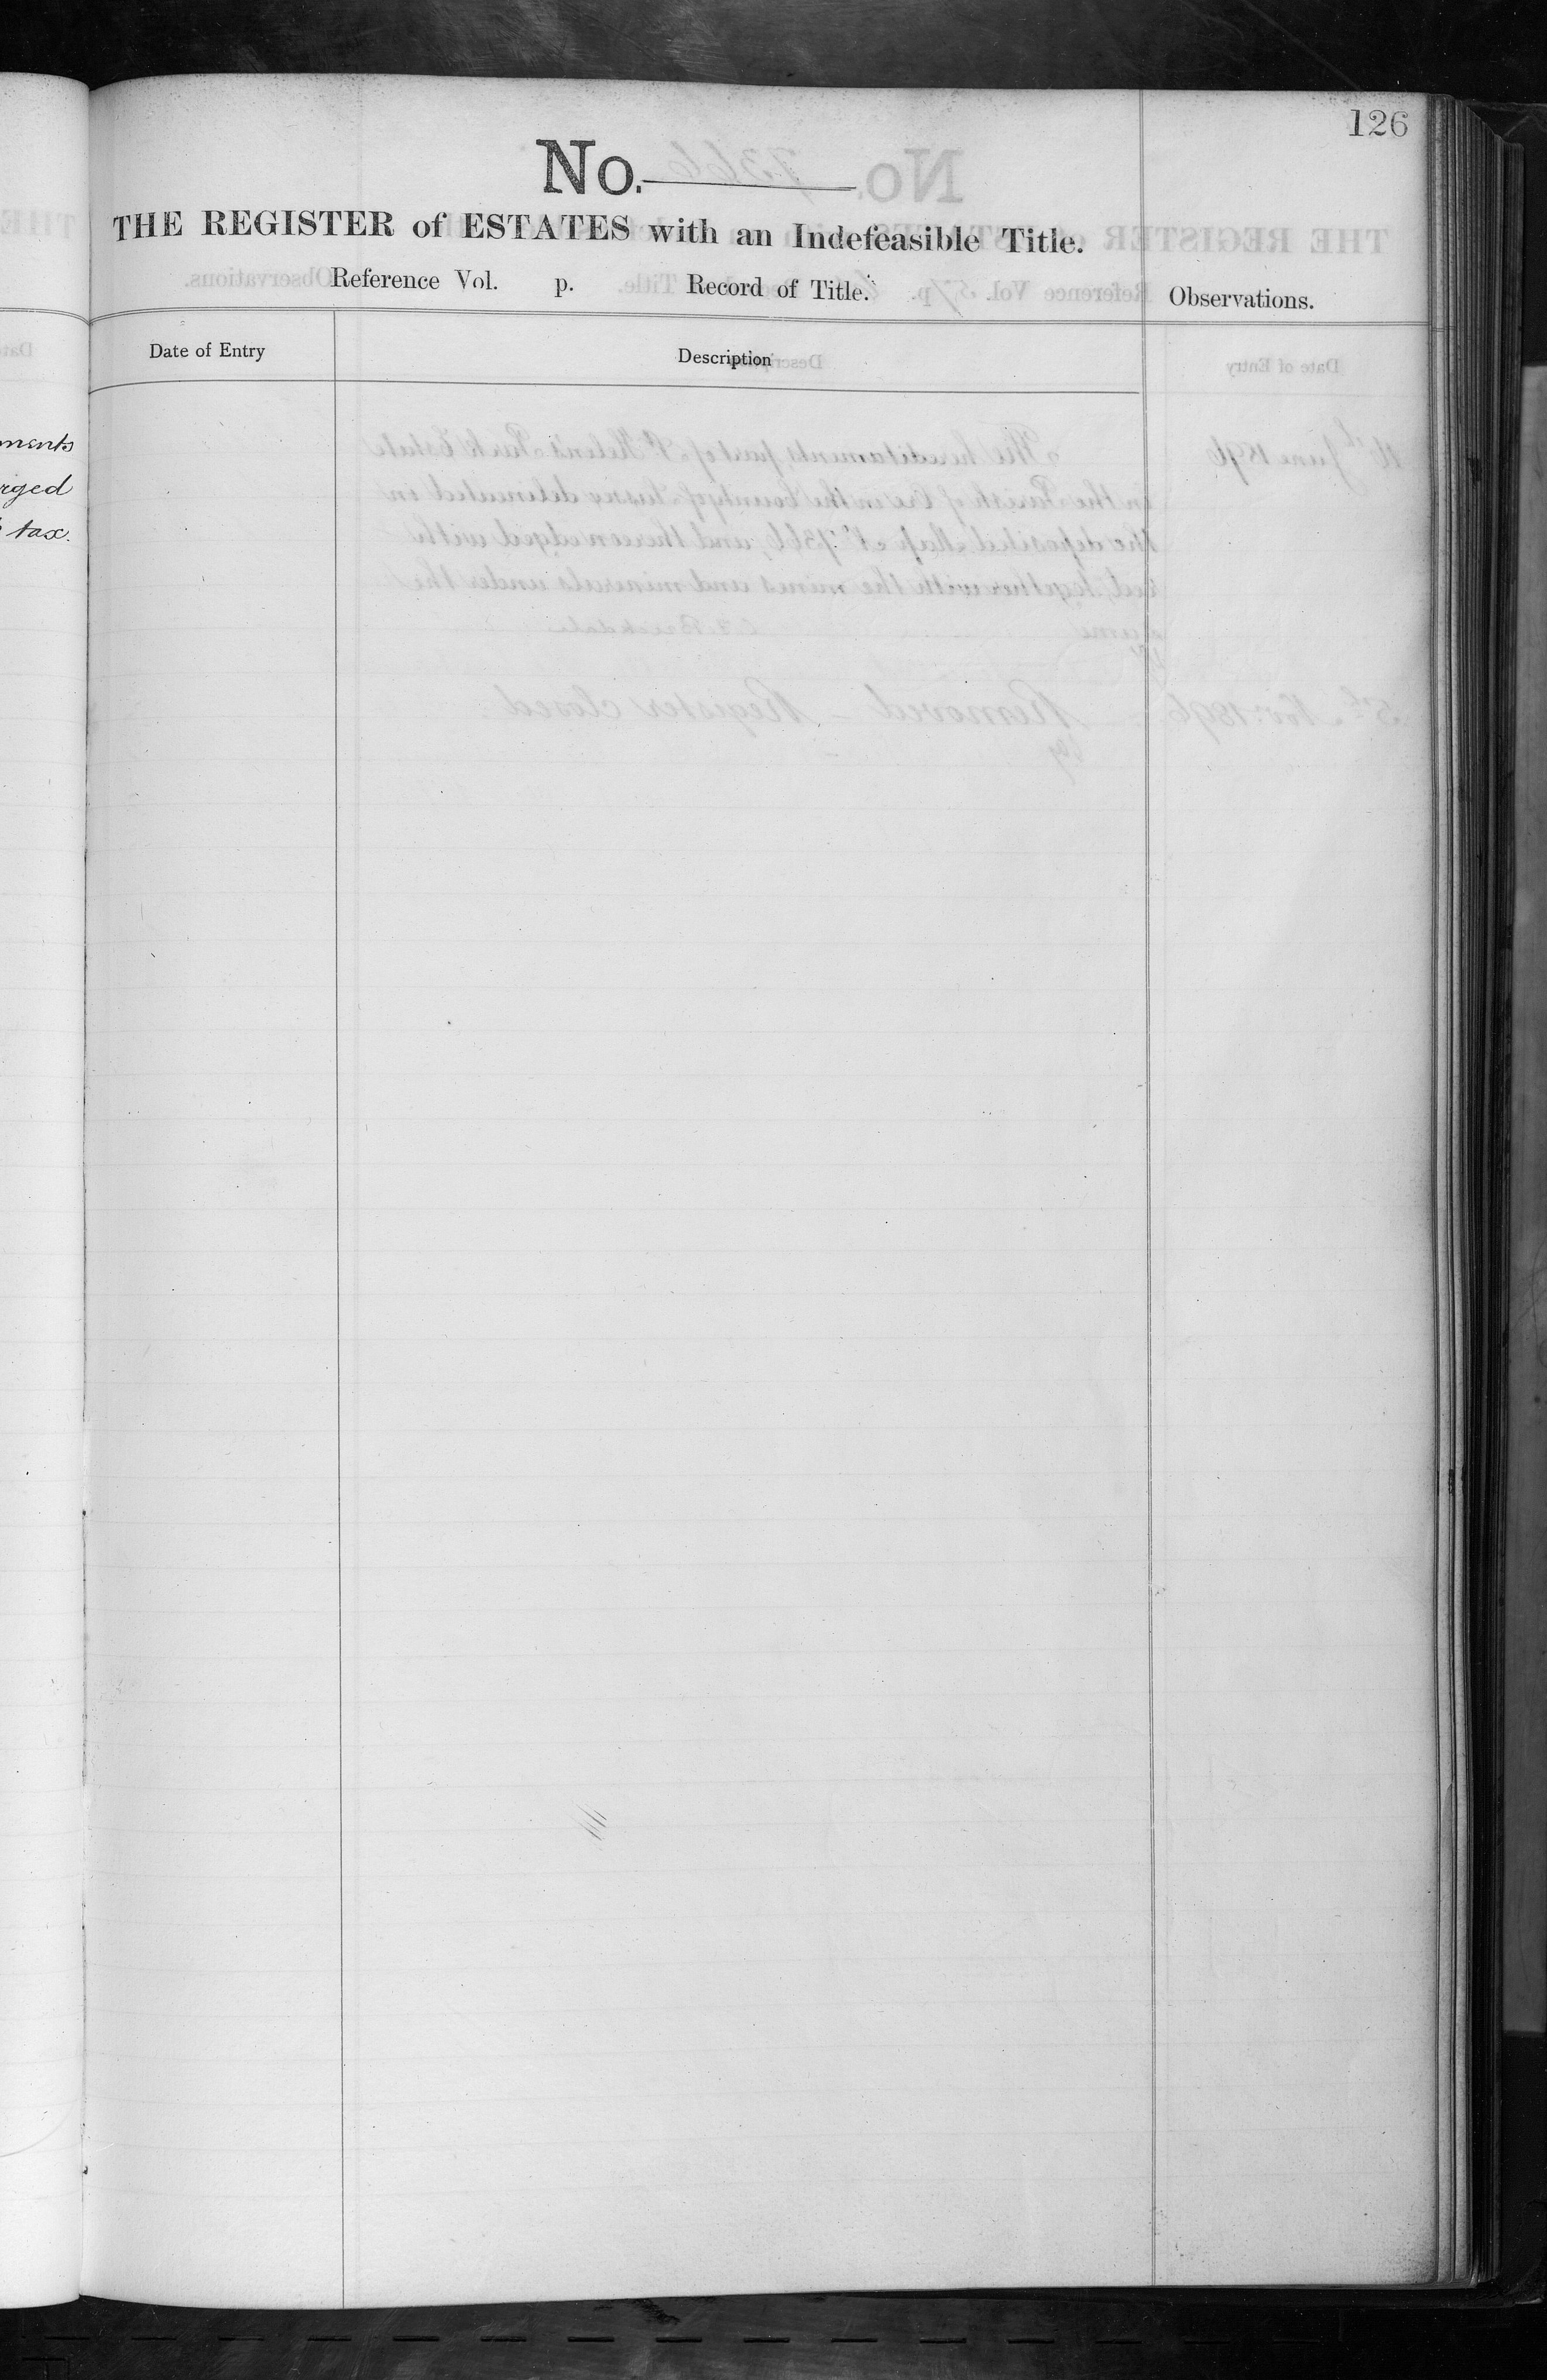 126
No.
THE REGISTER of ESTATES with an Indefeasible Title.
Reference Vol. p. Record of Title.
Observations.
Date of Entry
Description
ments
rged
tax.